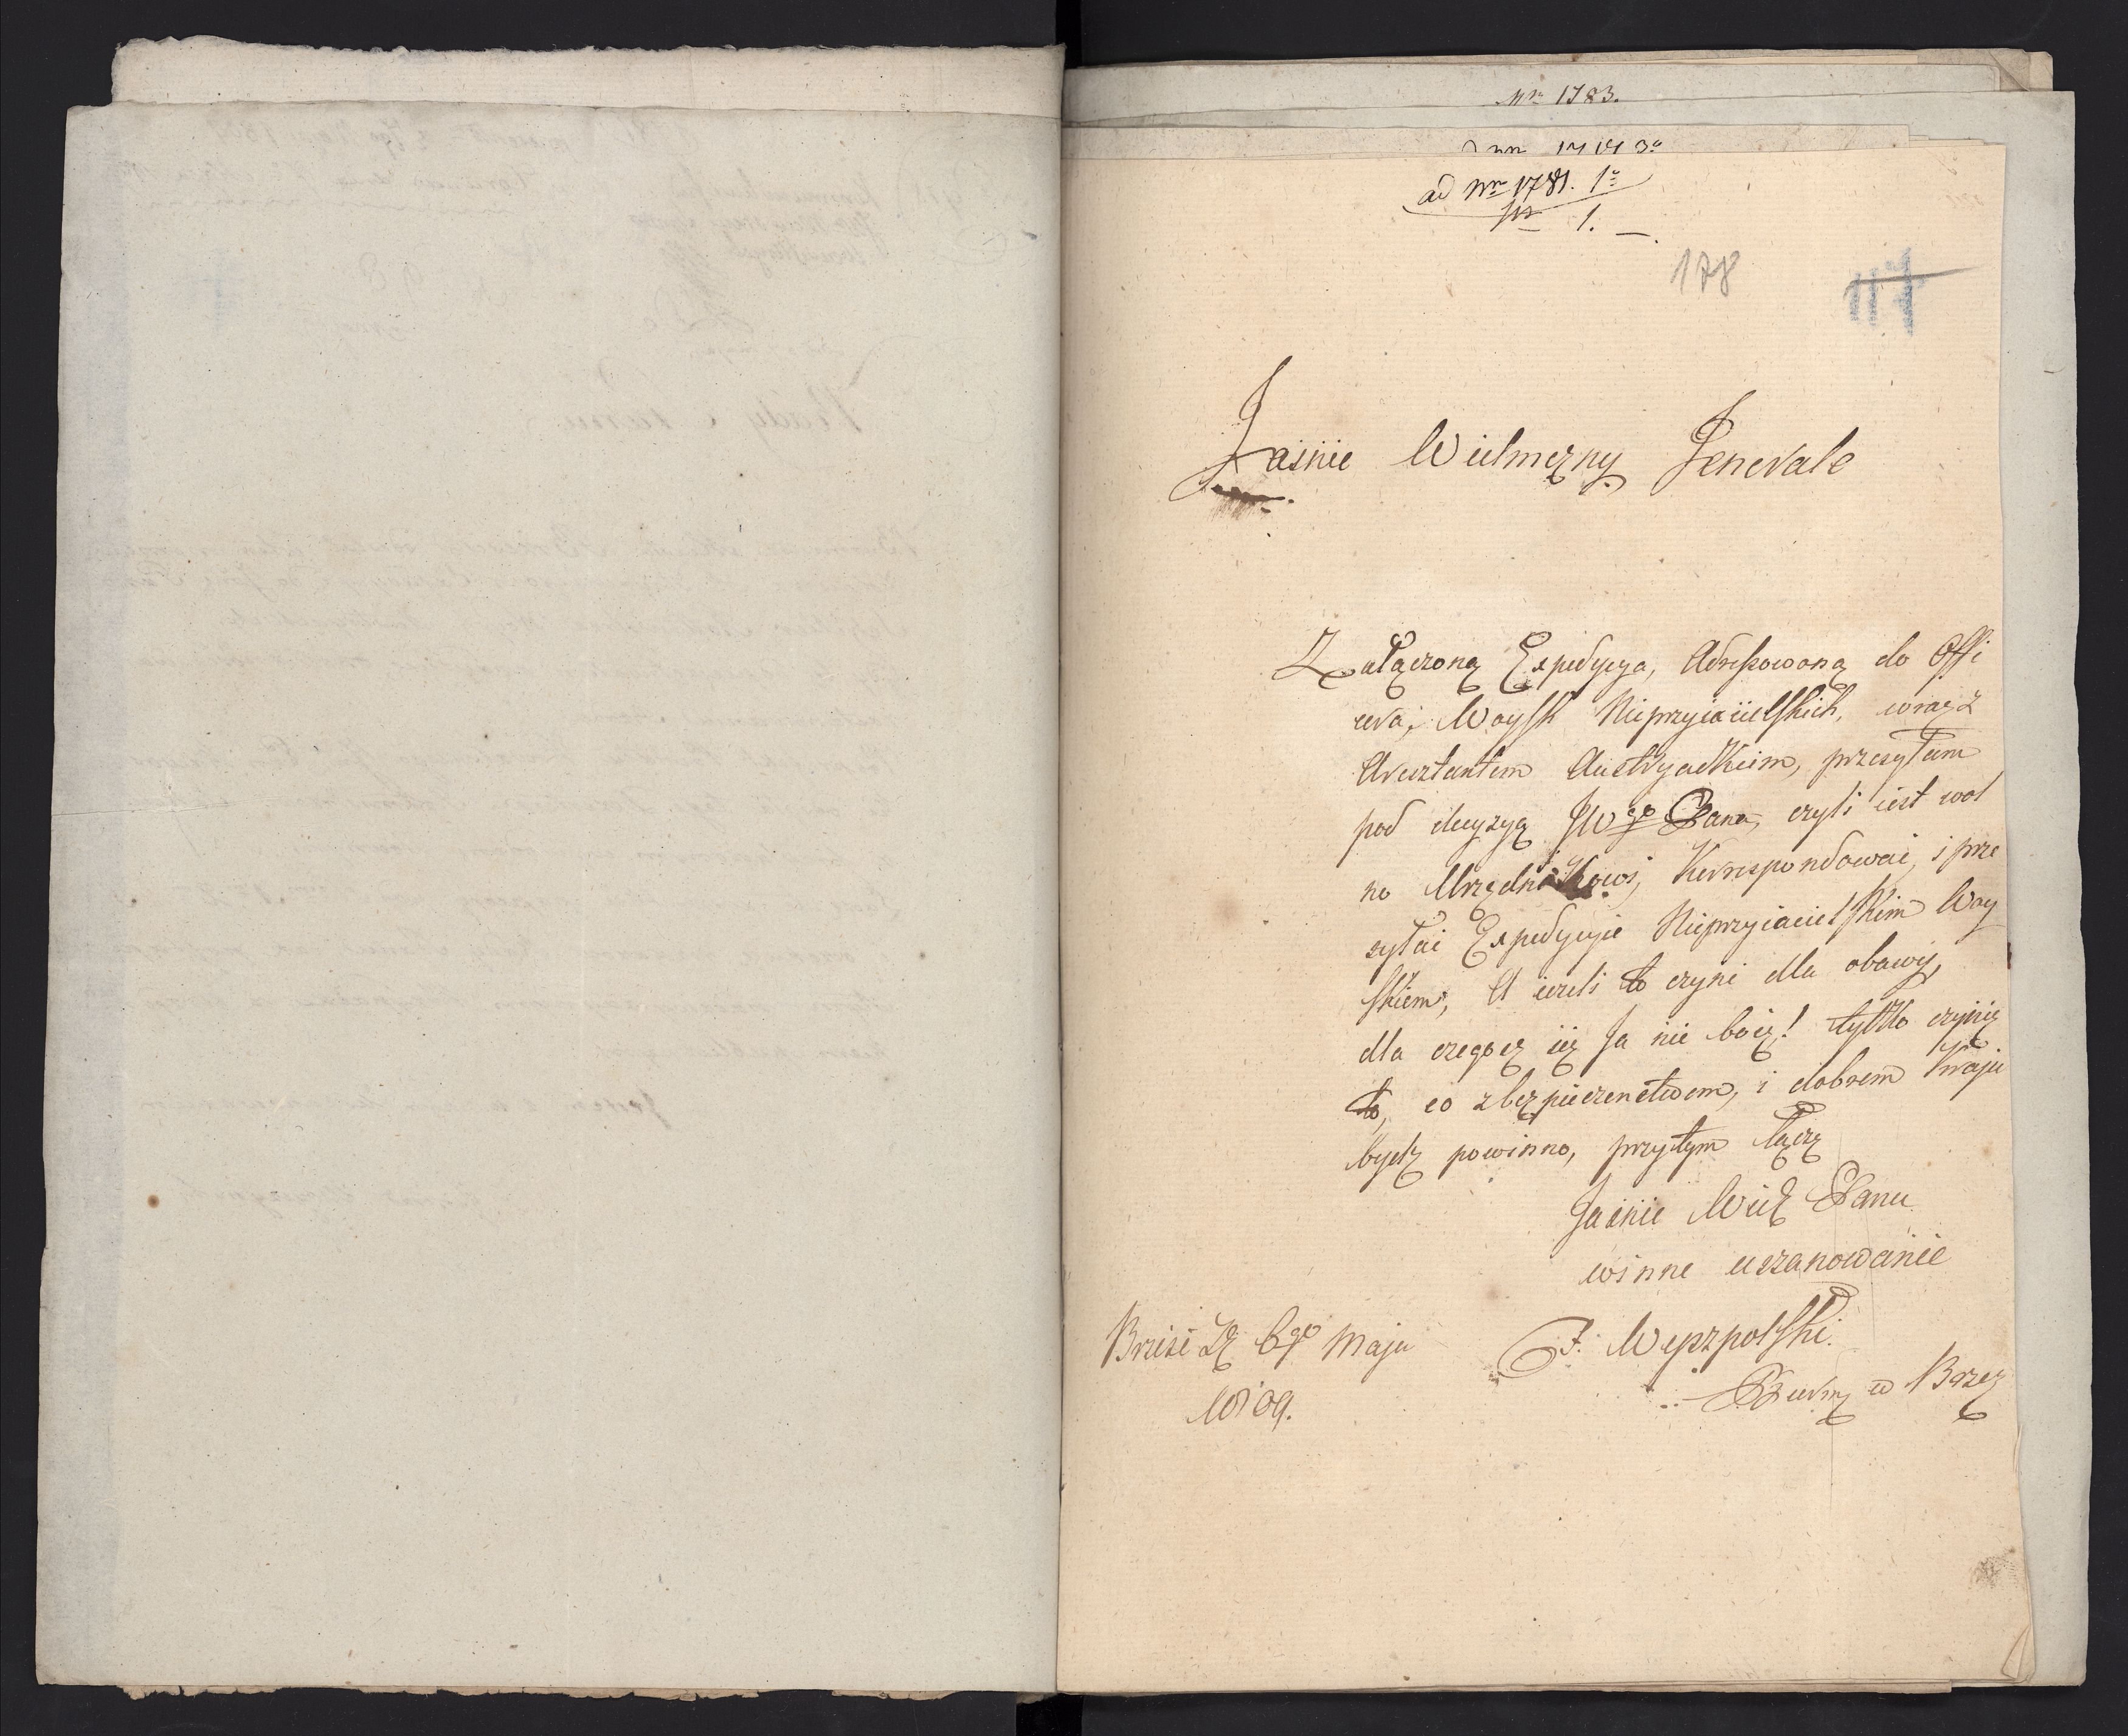 Nro 1783.
ad Nrm 1781. 1o
1.
178
117
Jasnie Wielmczny Jenerale
Załączoną Expedycya, Adressowaną do Offi
cera, Woysk Nieprzyiacielskich, wraz z
Aresztantem Austryackiem, przesyłam
pod decyzyą JWgo Pana, czyli iest wol
no Urzędnikowi, Korrespondowai, i prze
syłai Expedycyie Nieprzyiacielskim Woy
skiem, A iezeli to czyni dla obawy,
dla czegoz się Ja nie boię! tylko czynię
to, co z bezpieczenstwem, i dobrem Kraju
bydz powinno, przytym łączę
Jasnie Wielz Panu
winne uszanowanie
Brzesi Dz 6go Maja
1809.
F. Węszpolski.
w Brzez